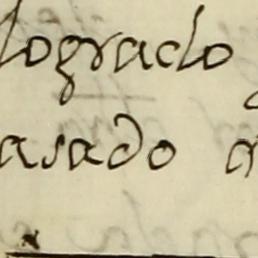 logrado
asado